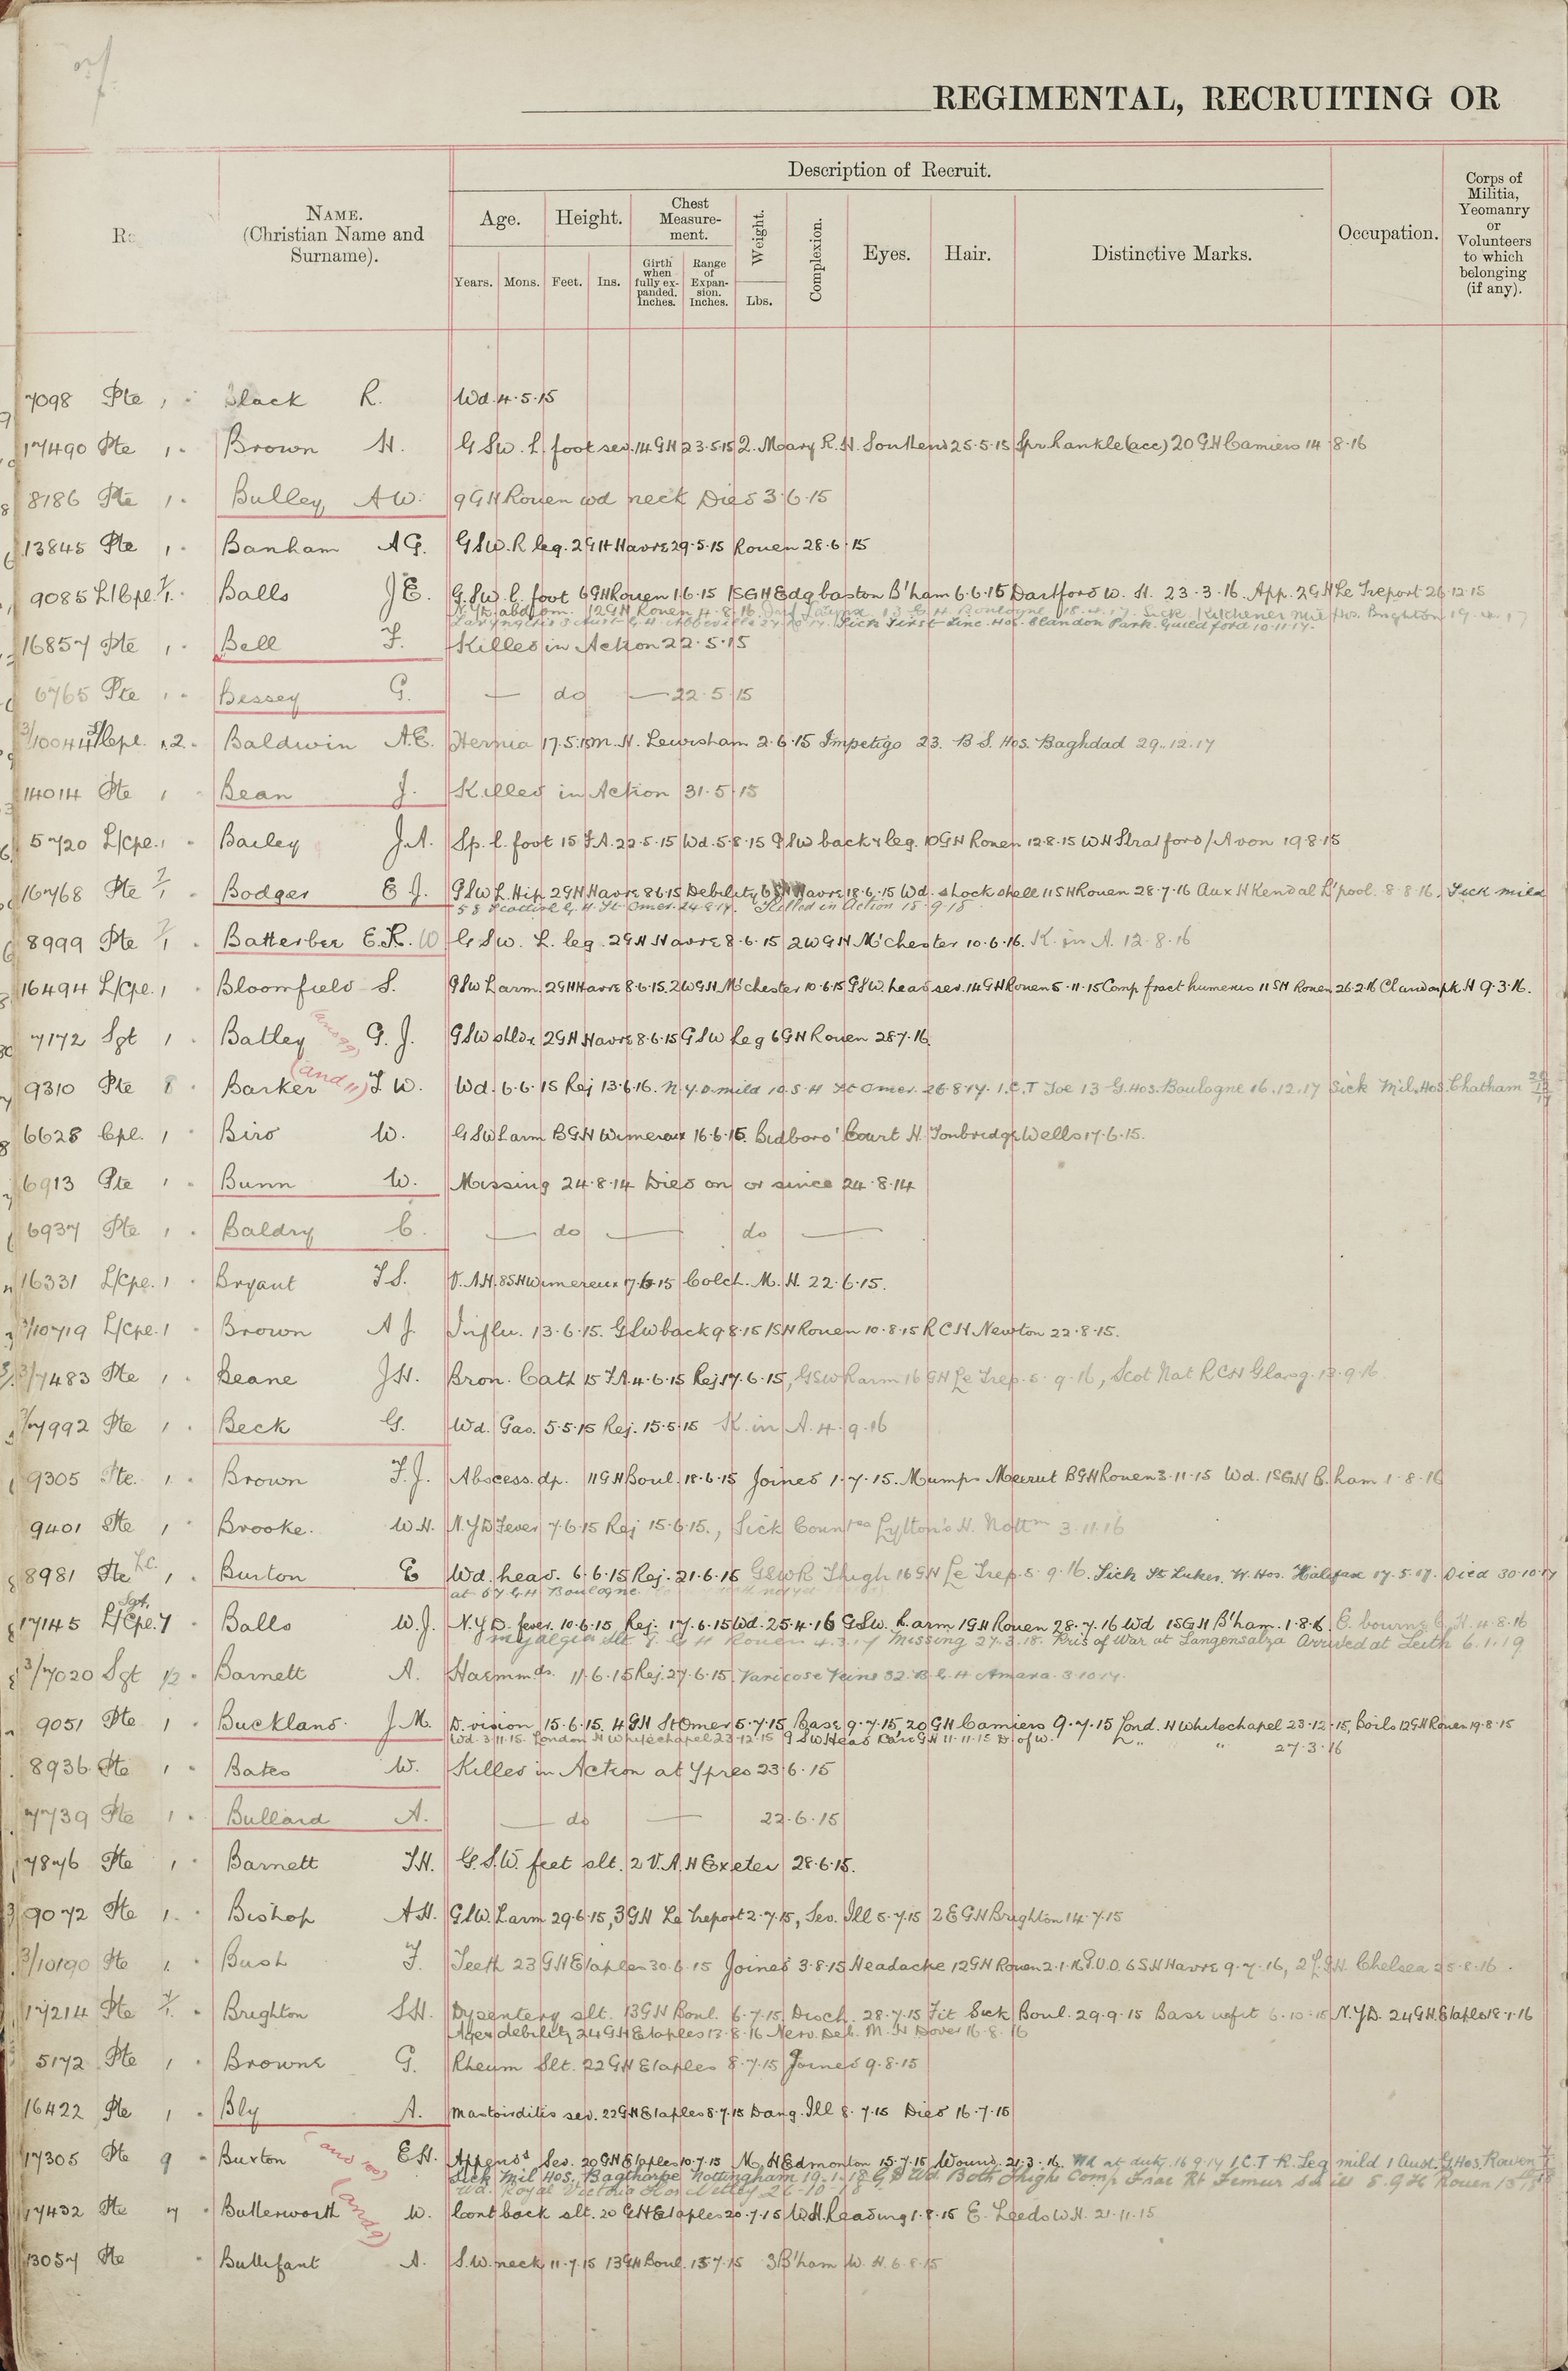 REGIMENTAL, RECRUITING OR
NAME.
(Christian Name and
Surname).
Description of Recruit.
Age.
Height.
Chest
Measure-
ment.
Weight.
Complexion.
Eyes.
Hair.
Distinctive Marks.
Occupation.
Corps of
Militia,
Yeomanry
or
Volunteers
to which
belonging
(if any).
Years.
Mons.
Feet.
Ins.
Girth
when
fully ex-
panded.
Inches.
Range
of
Expan-
sion.
Inches.
Lbs.
7098 Pte 1 Black R. Wd. 4.5.15
17490 Pte 1 Brown H. G.S.W. L. foot sev. 14 GH 23.5.15 Q. Mary R.H. Southend 25.5.15 Spr. R ankle (acc) 20 GH Camiers 14.8.16
8186 Pte 1 Bulley A W. 9 GH Rouen wd neck Died 3.6.15
13845 Pte 1 Banham A G. GSW. R leg. 2 GH Havre 29.5.15 Rouen 28.6.15
9085 L/Cpl. 7/1 Balls J E. G.S.W. L. foot 6 GH Rouen 1.6.15 1SGH Edgbaston B'ham 6.6.15 Dartford W. H. 23.3.16. App. 2 GH Le Treport 26.12.15
N.Y.D. abdom. 12 GH Rouen 4.8.16 13 G.H. Boulogne 18.4.17. Sick Kitchener Mil Hos. Brighton
Laryngitis 3 Aust G.H. Abbeville Sick First Line Hos. Clandon Park. Guildford 10.11.17.
16857 Pte 1 Bell F. Killed in Action 22.5.15
6765 Pte 1 Bessey G. — do — 22.5.15
3/10044 L/Cpl. 1.2. Baldwin A.E. Hernia 17.5.15 M.H. Lewisham 2.6.15 Impetigo 23. B.S. Hos. Baghdad 29.12.17
14014 Pte 1 Bean J. Killed in Action 31.5.15
5720 L/Cpe. 1 Bailey J.A. Sp. L. foot 15 F.A. 22.5.15 Wd. 5.8.15 GSW back & leg. 10 GH Rouen 12.8.15 WH Stratford/Avon 19.8.15
16768 Pte 7/1 Bodger E J. GSW L. Hip 2 GH Havre 8.6.15 Debility Havre 18.6.15 Wd. shock shell 11 SH Rouen 28.7.16 Aux H Kendal L'pool. 8.8.16. Sick mild
58 Scottish G.H. St Omer. 24.8.17. Killed in Action 18.9.18
8999 Pte 7/1 Batterbee E.R. W G.S.W. L. leg. 2 GH Havre 8.6.15 2WGH M'chester 10.6.16. K. in A. 12.8.16
16494 L/Cpe. 1 Bloomfield S. GSW L arm. 2 GH Havre 8.6.15. 2WGH M'chester 10.6.15 GSW. head sev. 14 GH Rouen 5.11.15 Comp fract humerus 11 SH Rouen 26.2.16 Clandon pk H 9.3.16.
7172 Sgt 1 Batley (and 99) G. J. GSW shldr. 2 GH Havre 8.6.15 GSW Leg 6 GH Rouen 28.7.16.
9310 Pte 8 Barker (and 11) F W. Wd. 6.6.15 Rej 13.6.16. N.Y.D. mild 10.S.H St Omer. 26.8.17. I.C.T Toe 13 G. Hos. Boulogne 16.12.17 Sick Mil. Hos. Chatham
6628 Cpl. 1 Bird W. GSW L arm BGH Wimereux 16.6.15. Bidboro' Court H. Tonbridge Wells 17.6.15.
6913 Pte 1 Bunn W. Missing 24.8.14 Died on or since 24.8.14
6937 Pte 1 Baldry C. — do — do —
16331 L/Cpe. 1 Bryant F S. V.A.H. 8SH Wimereux 17.6.15 Colch. M.H. 22.6.15.
3/10719 L/Cpe. 1 Brown A J. Influ. 13.6.15. GSW back 9.8.15 1SH Rouen 10.8.15 RCH Newton 22.8.15.
3/7483 Pte 1 Beane J H. Bron. Cath 15 FA 4.6.15 Rej 17.6.15, GSW R arm 16 GH Le Trep. 5.9.16, Scot Nat RCH Glasg. 13.9.16
7992 Pte 1 Beck G. Wd. Gas. 5.5.15 Rej. 15.5.15 K. in A. 4.9.16
9305 Pte. 1 Brown F.J. Abscess. dp. 11 GH Boul. 18.6.15 Joined 1.7.15. Mumps Meerut BGH Rouen 3.11.15 Wd. 1SGH B.ham 1.8.16
9401 Pte 1 Brooke. W.H. N.Y.D Fever 7.6.15 Rej 15.6.15., Sick Countess Lytton's H. Nottm 3.11.16
8981 Pte L.C. 1 Burton E Wd. head. 6.6.15 Rej. 21.6.15 GSW R Thigh 16 GH Le Trep. 5.9.16. Sick St Lukes. W. Hos. Halifax 17.5.17. Died 30.10.17
at 57 G.H Boulogne.
17145 L/Cpe. Sgt. 7 Balls W.J. N.Y.D. fever. 10.6.15 Rej. 17.6.15 Wd. 25.4.16 GSW. R arm 1 GH Rouen 28.7.16 Wd 1SGH B'ham. 1.8.16. E. bourne 4.8.16
Myalgia slt 8. G H Rouen 4.3.17 Missing 27.3.18. Pris of War at Langensalza Arrived at Leith 6.1.19
3/7020 Sgt 1/2 Barnett A. Haemmds. 11.6.15 Rej. 27.6.15. Varicose Veins 32. B.G.H Amara. 3.10.17.
9051 Pte 1 Buckland. J.M. D. vision 15.6.15. 4 GH St Omer 5.7.15 Base 9.7.15, 20 GH Camiers 9.7.15 Lond. H Whitechapel 23.12.15, Boils 12 GH Rouen 19.8.15
Wd. 3.11.15. London H Whitechapel 23.12.15 GSW Head 11.11.15 D of W. " " 27.3.16
8936 Pte 1 Bates W. Killed in Action at Ypres 23.6.15
7739 Pte 1 Bullard A. — do — 22.6.15
7876 Pte 1 Barnett F.H. G.S.W. feet slt. 2 V.A.H Exeter 28.6.15.
9072 Pte 1. Bishop A H. GSW. L arm 29.6.15, 3 GH Le Treport 2.7.15, Sev. Ill 5.7.15 2EGH Brighton 14.7.15
3/10190 Pte 1. Bush F. Teeth 23 GH Etaples 30.6.15 Joined 3.8.15 Headache 12 GH Rouen 2.1.16 P.U.O. 6SH Havre 9.7.16, 2LGH. Chelsea 25.8.16.
17214 Pte 7/1. Brighton S.H. Dysentery slt. 13 GH Boul. 6.7.15. Disch. 28.7.15 Fit Sick Boul. 29.9.15 Base unfit 6.10.15 N.Y.D. 24 GH. Etaples 18.1.16
debility 24 GH Etaples 13.8.16 Nerv. Deb. M.H Dover 16.8.16
5172 Pte 1 Browne G. Rheum Slt. 22 GH Etaples 8.7.15 Joined 9.8.15
16422 Pte 1 Bly A. Mastoiditis sev. 22 GH Etaples 8.7.15 Dang. Ill 8.7.15 Died 16.7.15
17305 Pte 9 Buxton (and 100) E H. Appends Sev. 20 GH Etaples 10.7.15 M.H Edmonton 15.7.15 Wound. 21.3.16. Wd at duty. 16.9.17 I.C.T R. Leg mild 1 Aust. G Hos. Rouen
Sick Mil Hos. Bagthorpe Nottingham 19.1.18 G S Wd. Both Thighs Comp Frac Rt Femur 5. G H Rouen
Wd. Royal Victoria Hos Netley 26.10.18
17432 Pte 7 Butterworth (and 9) W. Cont back slt. 20 GH Etaples 20.7.15 W.H. Reading 1.8.15 E. Leeds W.H. 21.11.15
13057 Pte Bullifant A. S.W. neck 11.7.15 13 GH Boul. 13.7.15 3 B'ham W. H. 6.8.15